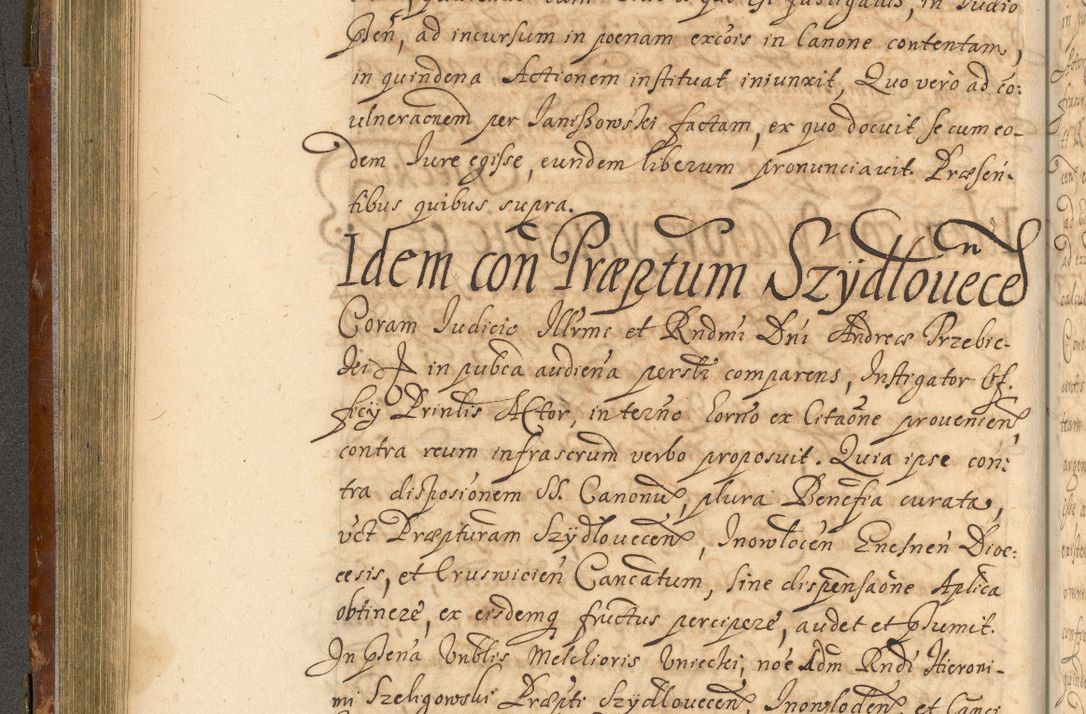 Pñ, ad incursum in poenam excõis in Canone contentam,
in quindena Actionem instituat iniunxit, Quo vero ad co:
vlneraõnem per Ianiszowski factam, ex quo docuit se cum eo-
dem Iure egisse, eundem liberum pronunciauit. Præsen-
tibus quibus supra.
Idem con̄ Præptum Szÿdłouecen
Coram Iudicio Illrmi et Rndmi Dni Andreæ Trzebic-
ki in pubca audiena persłr comparens, Instigator Of.
ficÿ Prinlis Actor, in terno horno ex Citaõne prouenien
contra reum infrascrum verbo proposuit. Quia ipse con:
tra disposionem SS. Canonu, plura Benefia curata,
vct Præpturam Szÿdłouecen, Inowłocen Gnesnen Dioe:
cesis, et Cruswicien Cancatum, sine dispensaõne Aplica
obtinere, ex eisdemq fructus percipere, audet et psumit.
In Pena Vnblis Melchioris Vniecki, noe Adm Rndi Hieroni-
mi Szeligowski Præpti Szÿdłouecen, Inowłoden et Canci